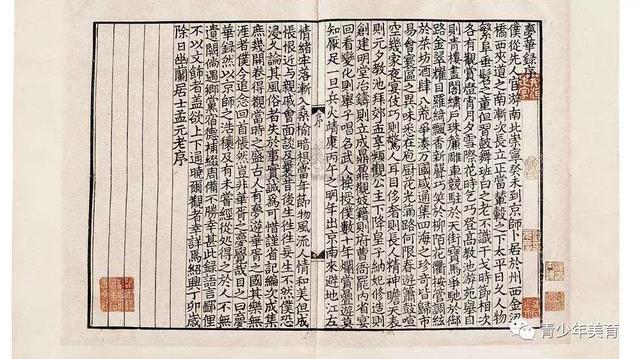 夢華錄序
僕從先人宦游南北崇寧癸未到京師卜居於州西金梁
橋西夾道之南漸次長立正當輦轂之下太平日久人物
繁阜垂髫之童但習鼓舞班白之老不識干戈時節相次
各有觀賞燈宵月夕雪際花時乞巧登高教池游苑舉目
則青樓畫閣繡戶珠簾雕車競駐於天街寶馬爭馳於御
路金翠耀目羅綺飄香新聲巧笑於柳陌花衢按管調絃
於茶坊酒肆八荒爭湊萬國咸通集四海之珍奇皆歸市
易會寰區之異味悉在庖廚花光滿路何限春遊簫鼓喧
空幾家夜宴伎巧則驚人耳目侈奢則長人精神瞻天表
則元夕教池拜郊孟享頻觀公主下降皇子納妃修造則
創建明堂冶鑄則立成鼎鼐觀妓籍則府曹衙罷內省宴
回看變化則舉子唱名武人換授僕數十年爛賞疊遊莫
知厭足一旦兵火靖康丙午之明年出京南來避地江左
序
情緒牢落漸入桑榆暗想當年節物風流人情和美但成
悵恨近與親戚會面談及曩昔後生往往妄生不然僕恐
浸久論其風俗者失於事實誠為可惜謹省記編次成集
庶幾開卷得覩當時之盛古人有夢遊華胥之國其樂無
涯者僕今追念回首悵然豈非華胥之夢覺哉目之曰夢
華錄然以京師之浩穰及有未嘗經從處得之於人不無
遺闕倘遇鄉黨宿德補綴周備不勝幸甚此錄語言鄙俚
不以文飾者蓋欲上下通曉爾觀者幸詳焉紹興丁卯歲
除日幽蘭居士孟元老序
青少年美育